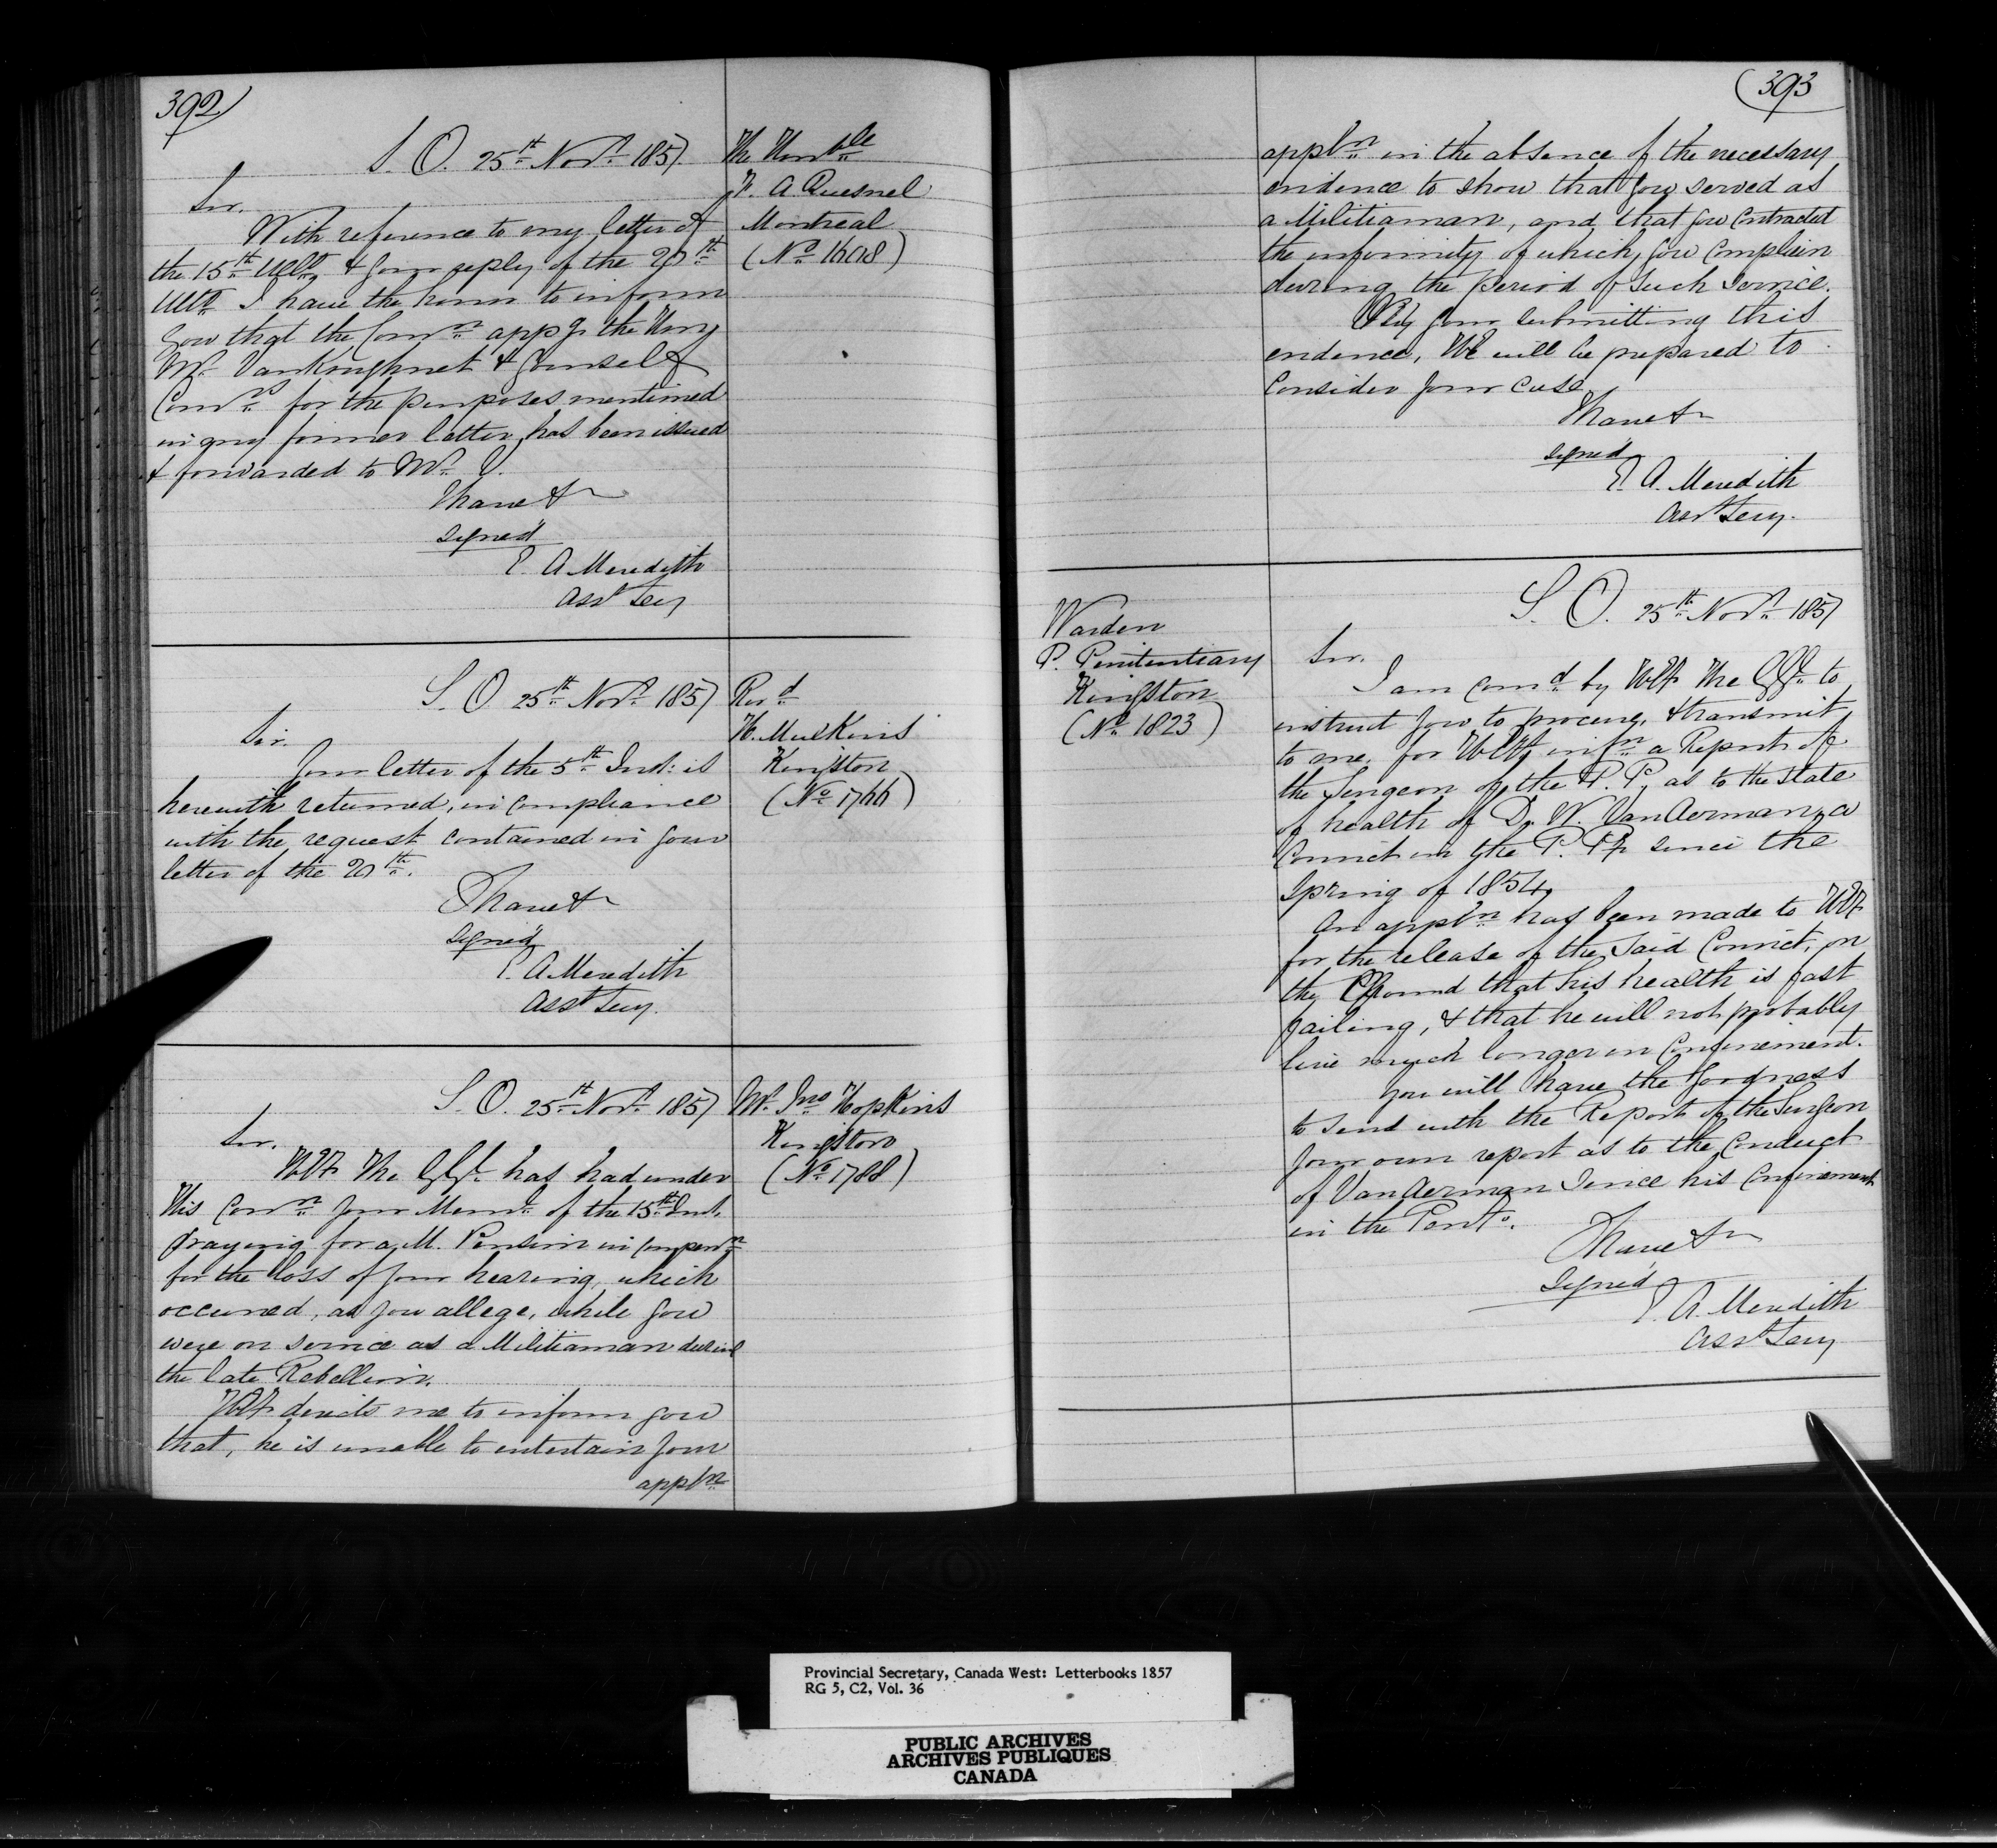 392
S. O. 25th Novr 1857
The Honble
F. A Quesnel
Montreal
(No 1608)
Sir.
With reference to my letter of
the 15th Ulto & your reply of the 20th
Ulto I have the honor to inform
you that the Comn appg the Hon
Mr VanKoughnet & yourself
Comrs for the purposes mentioned
in my former letter, has been issued
& forwarded to Mr V.
I have &
signed
E. A Meredith
Asst Secy
S. O. 25th Novr 1857
Revd
H. Mulkins
Kingston
(No 1766)
Sir.
Your letter of the 5th Inst: is
herewith returned, in compliance
with the request contained in your
letter of the 20th.
I have &
signed
E. A Meredith
Asst Secy.
S. O. 25th Novr 1857
Mr Jno Hopkins
Kingston
(No 1788)
Sir.
HE The GGl has had under
His Conn your Meml of the 15th Inst.
praying for a M. Pension in compenn
for the loss of your hearing, which
occurred, as you allege, while you
were on service as a Militiaman during
the late Rebellion.
HE directs me to inform you
that, he is unable to entertain your
appln
393
appln in the absence of the necessary
evidence to show that you served as
a Militiaman, and that you contracted
the infirmity of which you complain
during the period of such service.
your submitting this
evidence, HE will be prepared to
consider your case
I have &
signed
E. A. Meredith
Asst Secy.
S. O. 25th Novr 1857
Warden
P. Penitentiary
Kingston
(No 1823)
Sir.
I am comd by HE The GGl to
instruct you to procure, & transmit
to me, for HE's infn a Report of
the Surgeon of the P. P. as to the state
of health of D. W. VanAerman, a
Convict in the P. P. since the
Spring of 1854.
An appln has been made to HE
for the release of the said Convict, on
the Ground that his health is fast
failing, & that he will not probably
live much longer in Confinement.
You will have the goodness
to send with the Report of the Surgeon
your own report as to the conduct
of VanAerman since his Confinement
in the Penty.
I have &
Signed
E. A. Meredith
Asst Secy
Provincial Secretary, Canada West: Letterbooks 1857
RG 5, C2, Vol. 36
PUBLIC ARCHIVES
ARCHIVES PUBLIQUES
CANADA